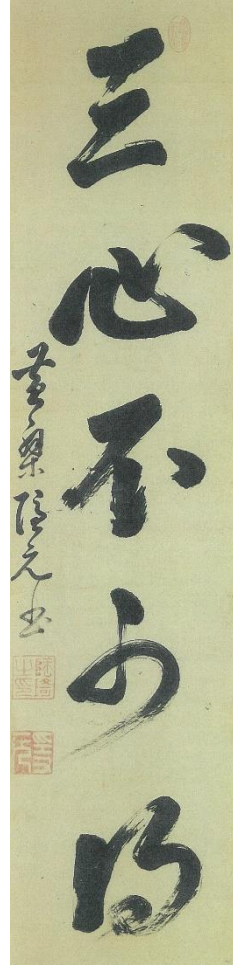 三心不可得
黄檗隠元書